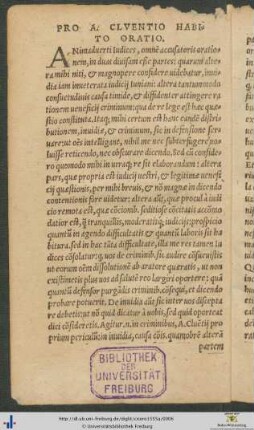 PRO A. CLVENTIO HABI-
TO ORATIO.
ANimaduerti Iudices, omnē accusatoris oratio-
nem, in duas diuisam esse partes: quarum alte-
ra mihi niti, & magnopere confidere uidebatur, inui-
dia iam inueterata iudicij Iuniani: altera tantummodo
consuetudinis causa timide, & diffidenter attingere ra-
tionem ueneficij criminum: qua de re lege est hæc quæ-
stio constituta. Itaq; mihi certum est hanc eandē distri-
butionem, inuidiæ, & criminum, sic in defensione ser-
uare: ut oēs intelligant, nihil me nec subterfugere uo-
luisse reticendo, nec obscurare dicendo. Sed cū conside-
ro quomodo mihi in utraq; re sit elaborandum: altera
pars, quæ propria est iudicij uestri, & legitimæ uenefi-
cij quæstionis, per mihi breuis, & nō magnæ in dicendo
contentionis fore uidetur: altera aūt, quæ procul à iudi-
cio remota est, quæ cōcionib. seditiose cōcitatis accōmo-
datior est, q̄ tranquillis, moderatisq; iudicijs: prospicio
quantū in agendo difficultatis & quantū laboris sit ha
bitura. sed in hac tāta difficultate, illa me res tamen Iu
dices cōsolatur: q uos de criminib. sic audire cōsueuistis
ut eorum oēm dissolutionē ab oratore quæratis, ut non
existimetis plus uos ad salutē reo largiri oportere: quā
quantū defensor purgādis criminib. cōsequi, et dicendo
probare potuerit. De inuidia aūt sic inter uos discepta
re debetis: ut nō quid dicatur à nobis, sed quid oporteat
dici cōsideretis. Agitur. n. in criminibus, A. Cluētij pro
prium periculum: in inuidia, causa cōis. quamobrē alterā
partem
BIBLIOTHEK
DER
UNIVERSITÄT
FREIBURG
© Universitätsbibliothek Freiburg